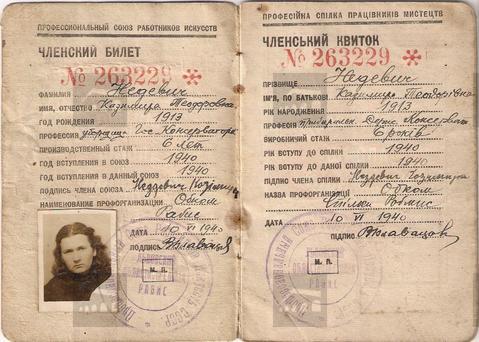 ПРОФЕССИОНАЛЬНЫЙ СОЮЗ РАБОТНИКОВ ИСКУССТВ
ЧЛЕНСКИЙ БИЛЕТ
№ 263229 *
ФАМИЛИЯ Недевич
ИМЯ, ОТЧЕСТВО Казимира Теодоровна
ГОД РОЖДЕНИЯ 1913
ПРОФЕССИЯ Гос Консерватор
ПРОИЗВОДСТВЕННЫЙ СТАЖ 6 лет
ГОД ВСТУПЛЕНИЯ В СОЮЗ 1940
ГОД ВСТУПЛЕНИЯ В ДАННЫЙ СОЮЗ 1940
ПОДПИСЬ ЧЛЕНА СОЮЗА
НАИМЕНОВАНИЕ ПРОФОРГАНИЗАЦИИ Обком
Рабис
ДАТА 10 VI 1940
ПОДПИСЬ
М. П.
РАБИС
ПРОФЕСІЙНА СПІЛКА ПРАЦІВНИКІВ МИСТЕЦТВ
ЧЛЕНСЬКИЙ КВИТОК
№ 263229 *
ПРІЗВИЩЕ Недевич
ІМ'Я, ПО БАТЬКОВІ Казимира Теодорівна
РІК НАРОДЖЕННЯ 1913
ПРОФЕСІЯ Держ Консерват
ВИРОБНИЧИЙ СТАЖ 6 років
РІК ВСТУПУ ДО СПІЛКИ 1940
РІК ВСТУПУ ДО ДАНОЇ СПІЛКИ 1940
ПІДПИС ЧЛЕНА СПІЛКИ
НАЗВА ПРОФОРГАНІЗАЦІЇ Обком
Спілки Робмис
ДАТА 10 VI 1940
ПІДПИС
М. П.
РАБИС